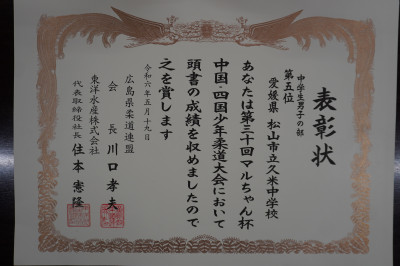 表彰状
中学生男子の部
第五位
愛媛県 松山市立久米中学校
あなたは第三十回マルちゃん杯
中国・四国少年柔道大会において
頭書の成績を収めましたので
之を賞します
令和六年五月十九日
広島県柔道連盟
会長 川口孝夫
東洋水産株式会社
代表取締役社長 住本憲隆